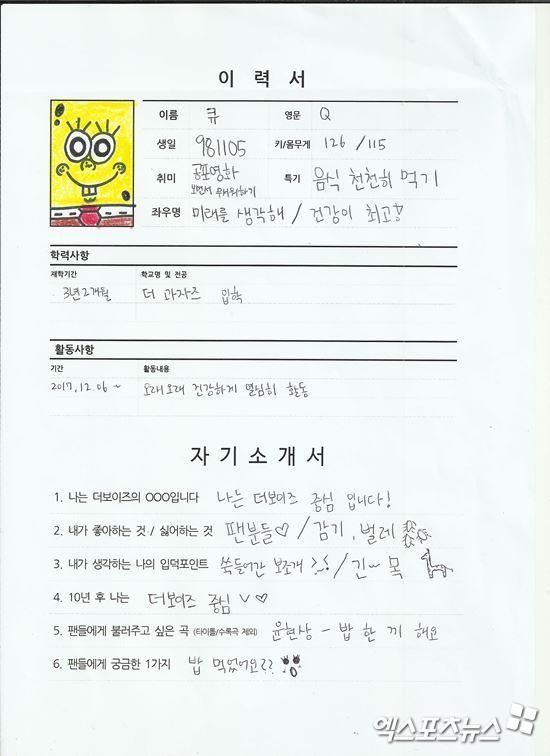 이 력 서
이름 큐 영문 Q
생일 981105 키/몸무게 126 / 115
취미 공포영화 보면서 뭐뭐하기 특기 음식 천천히 먹기
좌우명 미래를 생각해 / 건강이 최고
학력사항
재학기간 학교명 및 전공
3년2개월 더 과자즈 입학
활동사항
기간 활동내용
2017.12.06 ~ 오래오래 건강하게 열심히 활동
자 기 소 개 서
1. 나는 더보이즈의 OOO입니다 나는 더보이즈 중심 입니다!
2. 내가 좋아하는 것 / 싫어하는 것 팬분들♡ / 감기, 벌레
3. 내가 생각하는 나의 입덕포인트 쏙들어간 보조개 / 긴~ 목
4. 10년 후 나는 더보이즈 중심 V ♡
5. 팬들에게 불러주고 싶은 곡 (타이틀/수록곡 제외) 윤현상 - 밥 한 끼 해요
6. 팬들에게 궁금한 1가지 밥 먹었어요??
엑스포츠뉴스